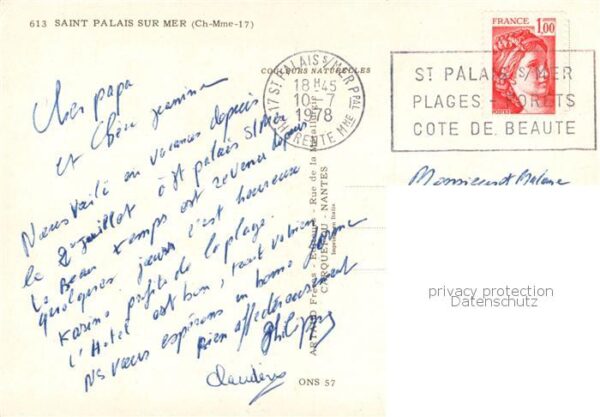 613 SAINT PALAIS SUR MER (Ch-Mme-17)
COULEURS NATURELLES
Cher papa
et Chère Jeannine
Nous voilà en vacances depuis
le 2 juillet à St palais s/Mer
le Beau temps est revenu depuis
quelques jours c'est heureux
Karine profite de la plage.
l'Hotel est bon, tout va bien
Ns vous espérons en bonne forme
bien affectueusement
Philippe
Claudine
ONS 57
ARTAUD Frères - Éditeurs - Rue de la Métallurgie
CARQUEFOU - NANTES
Imprimé en Italie
17 ST PALAIS S/MER PPAL
18H45
10-7
1978
CHARENTE MME
FRANCE
1,00
POSTES
ST PALAIS S/MER
PLAGES FORETS
COTE DE BEAUTE
Monsieur et Madame
privacy protection
Datenschutz